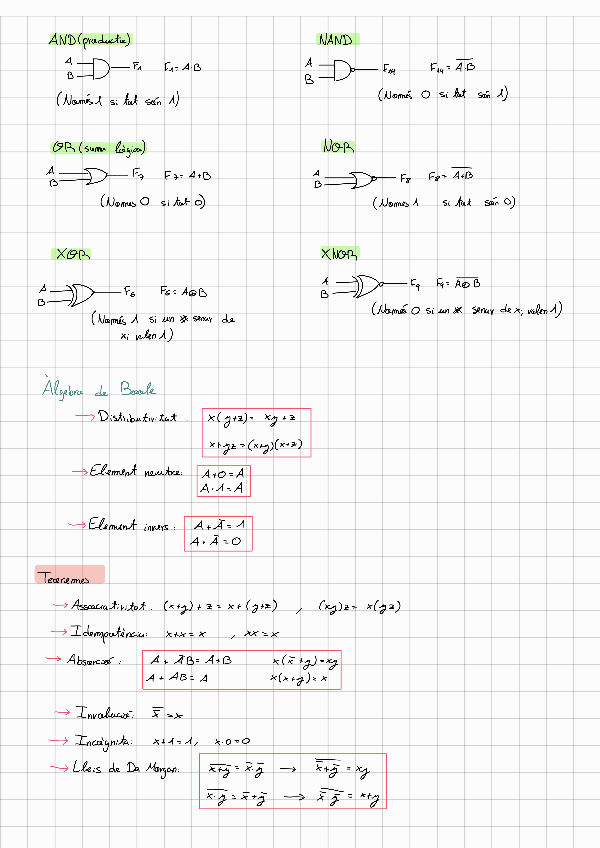 AND (producte)
A
B
F₁ F₁ = A·B
(Només 1 si tot són 1)
NAND
A
B
F₁₄ F₁₄ = \overline{A·B}
(Només 0 si tot són 1)
OR (suma lògica)
A
B
F₇ F₇ = A+B
(Només 0 si tot 0)
NOR
A
B
F₈ F₈ = \overline{A+B}
(Només 1 si tot són 0)
XOR
A
B
F₆ F₆ = A⊕B
(Només 1 si un # senar de
xi valen 1)
XNOR
A
B
F₉ F₉ = \overline{A⊕B}
(Només 0 si un # senar de x, valen 1)
Àlgebra de Boole
→ Distributivitat. x(y+z) = xy + z
x+yz = (x+y)(x+z)
→ Element neutre: A+0 = A
A·1 = A
→ Element invers: A + Ā = 1
A · Ā = 0
Teoremes
→ Associativitat. (x+y) + z = x + (y+z) , (xy)z = x(yz)
→ Idempotència: x+x = x , xx = x
→ Absorció: A + ĀB = A+B x(x̄+y) = xy
A + AB = A x(x+y) = x
→ Involució: \overline{\overline{x}} = x
→ Incògnita: x+1 = 1, x·0 = 0
→ Lleis de De Morgan: \overline{x+y} = x̄·ȳ → \overline{x̄+ȳ} = xy
\overline{x·y} = x̄+ȳ → \overline{x̄·ȳ} = x+y